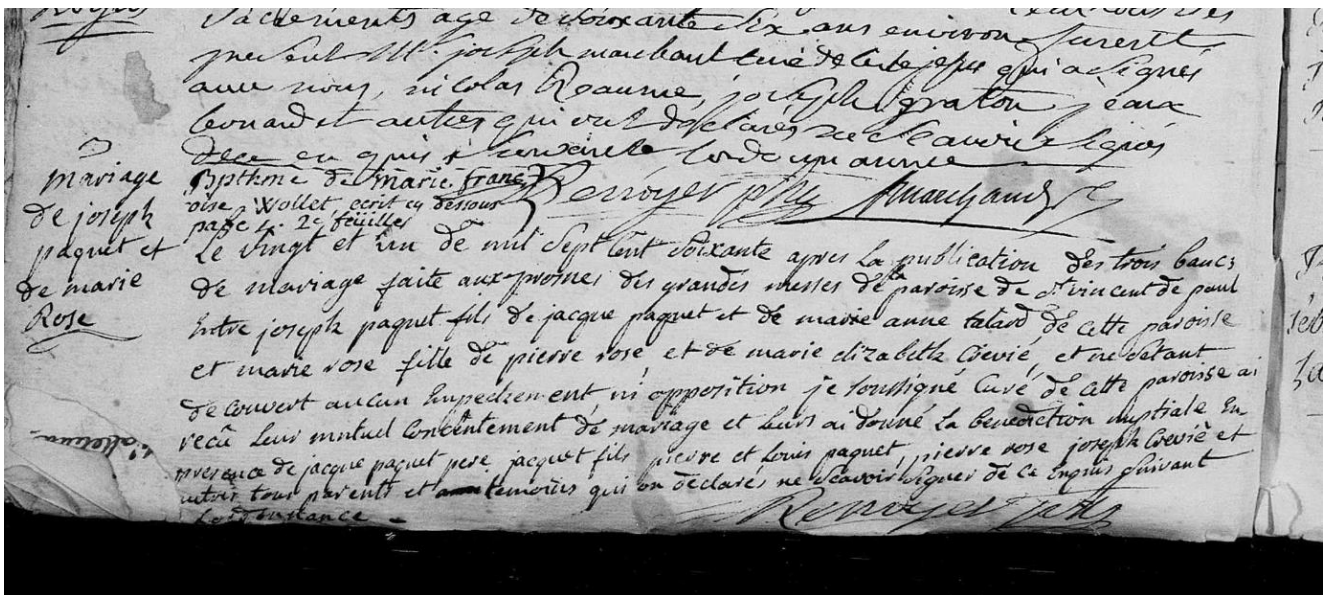 Sacrements agé de Soixante Six ans environ furent
present Mr. joseph marchant curé de qui a Signés
avec nous, nicolas Reaume, joseph graton jean
Leonard et autres qui ont déclarés ne Scavoir Signés
De ce enquis
mariage
de joseph
paquet et
de marie
Rose
Bpthme de marie franç
oise Vollet ecrit cy dessous
page 2e feüillet
Renoyer ptre Amarchand
Le vingt et un de mil Sept cent Soixante apres La publication des trois bancs
de mariage faite aux prosnes des grandes messes de la paroisse de St vincent de paul
Entre joseph paquet fils de jacque paquet et de marie anne talard de cette paroisse
et marie rose fille de pierre rose et de marie elizabeth Crevié, et ne Setant
decouvert aucun Empechement ni opposition je Soussigné Curé de cette paroisse ai
recû Leur mutuel Concentement de mariage et Leurs ai donné La benediction nuptiale En
presence de jacque paquet pere jacque fils pierre et Louis paquet, pierre rose joseph Crevié et
autres tous parents et temoins qui on déclarés ne Scavoir Signer de ce Enquis Suivant
Lordonnance
Renoyer ptre